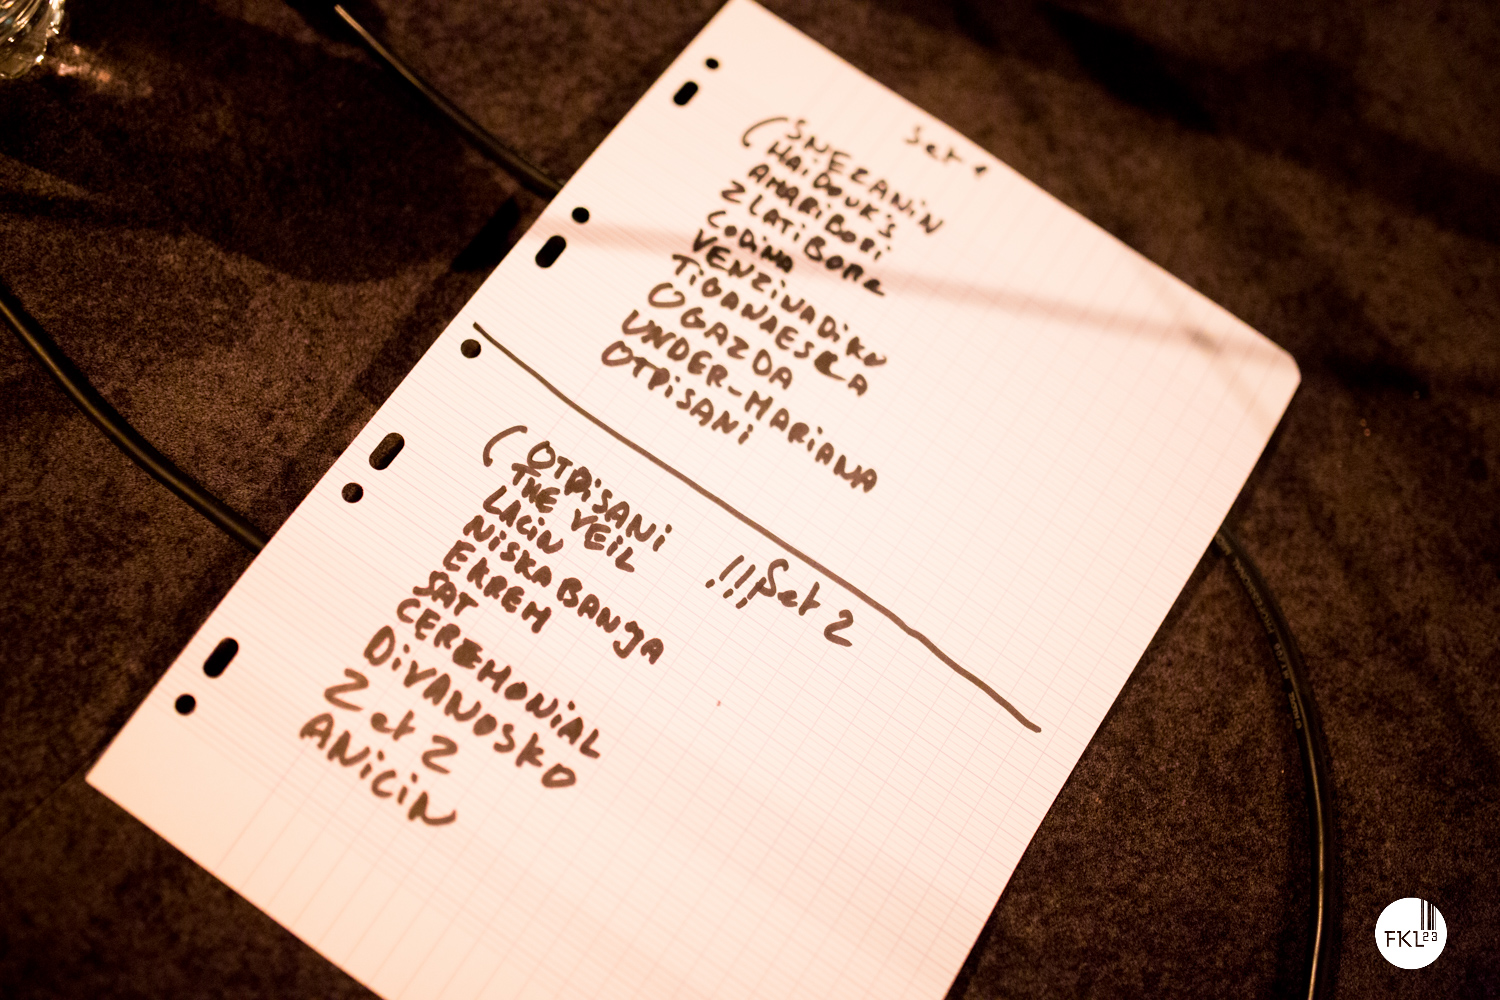 Set 1
(SNEZANIN
HAiDOUK'S
AMARiBORi
ZLATiBORE
CODiMA
VENZiNADiKO
TiGANAESCA
OGAZDA
UNDER-MARiANA
OTPiSANi
!!! Set 2
(OTPiSANi
THE VEiL
LACiN
NiSKA BANJA
EKREM
SAT
CEREMONiAL
DiVANOSKO
2 et 2
ANiCiN
FKL23